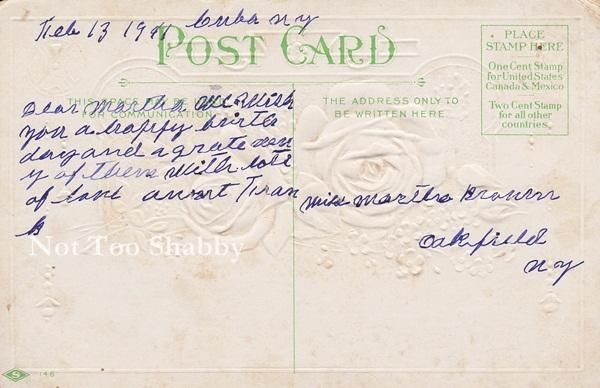 Feb 13 1911 Cuba NY
POST CARD
PLACE
STAMP HERE
One Cent Stamp
for United States
Canada & Mexico
Two Cent Stamp
for all other
countries.
THIS
FOR COMMUNICATION.
THE ADDRESS ONLY TO
BE WRITTEN HERE.
Dear Martha We Wish
you a happy birth
day and a grate man
y of them With lots
of love aunt Fran
k
Miss Martha Brown
Oakfield
NY
Not Too Shabby
S
146